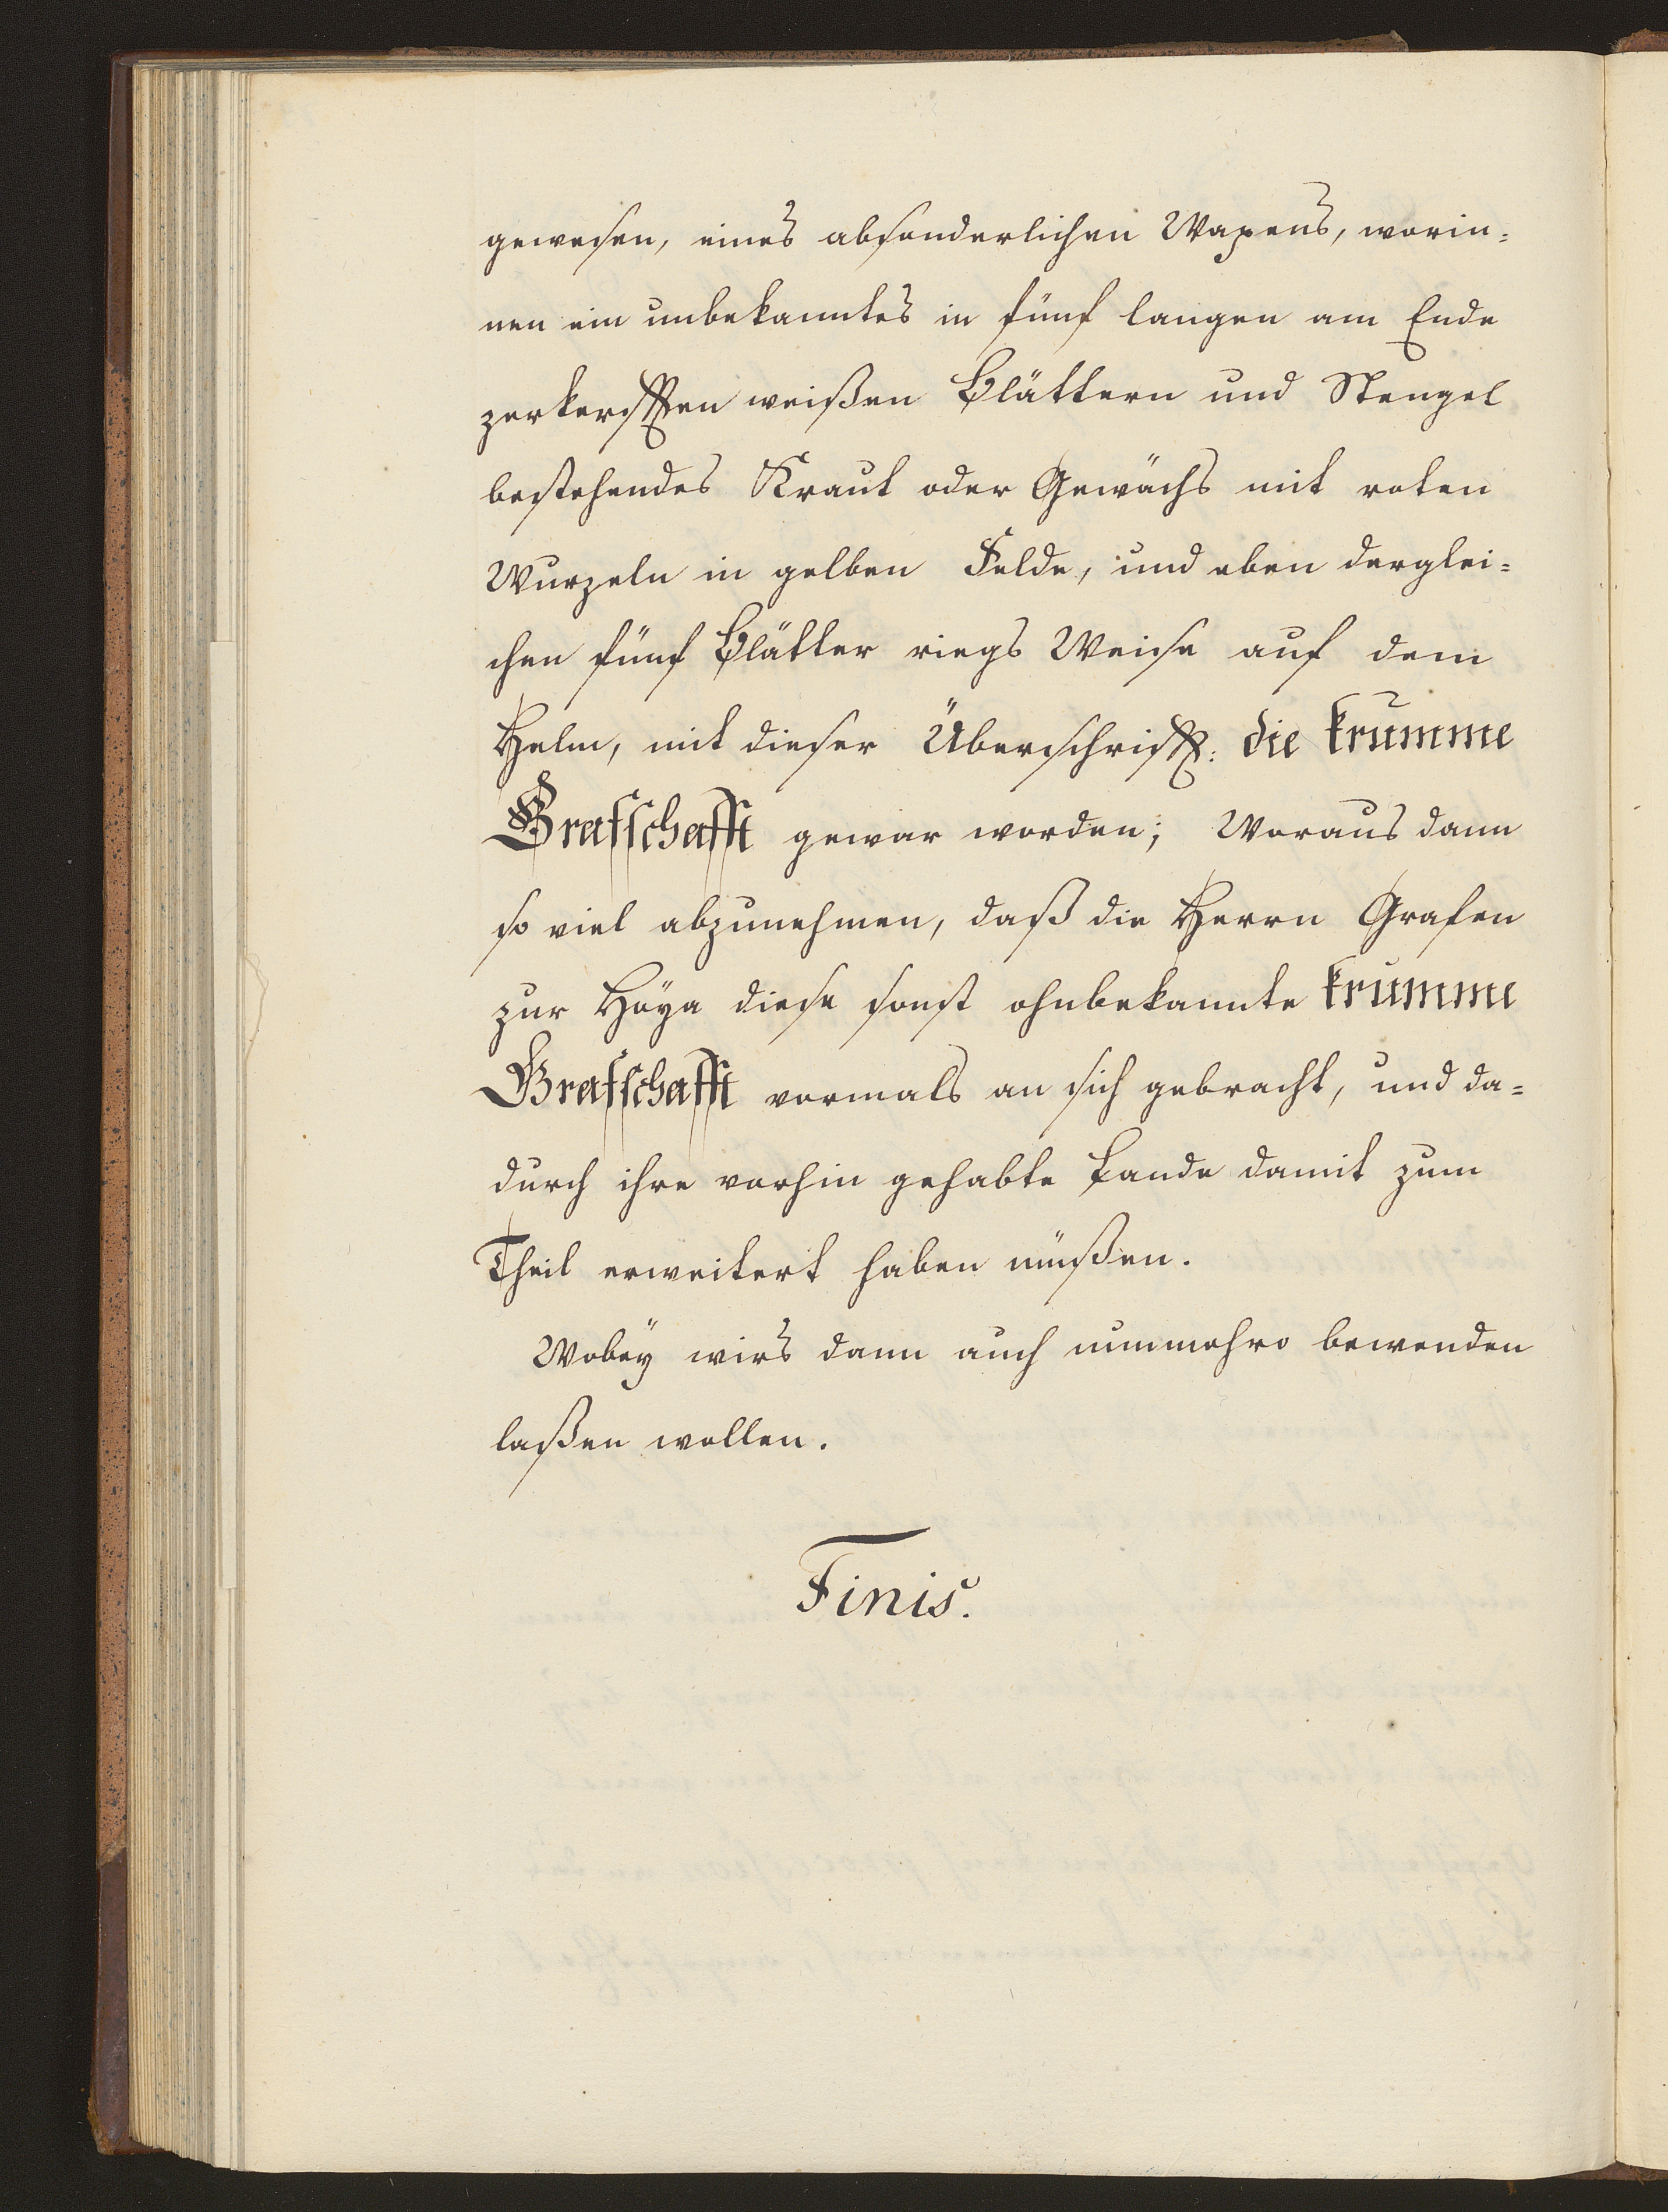 gewesen, eines absonderlichen Wapens, worin=
nen ein unbekanntes in fünf langen am Ende
zerkerfften weißen Blättern und Stengel
bestehendes Kraut oder Gewächs mit roten
Wurzeln in gelben Felde, und eben derglei=
chen fünf Blätter riegs Weise auf dem
Helm, mit dieser Überschrifft: die krumme
Grafschafft gewar worden; Woraus dann
so viel abzunehmen, daß die Herrn Grafen
zur Hoÿa diese sonst ohnbekannte krumme
Grafschafft vormals an sich gebracht, und da=
durch ihre vorhin gehabte Lande damit zum
Theil erweitert haben müßen.
Wobeÿ wirs dann auch nunmehro bewenden
laßen wollen.
Finis.